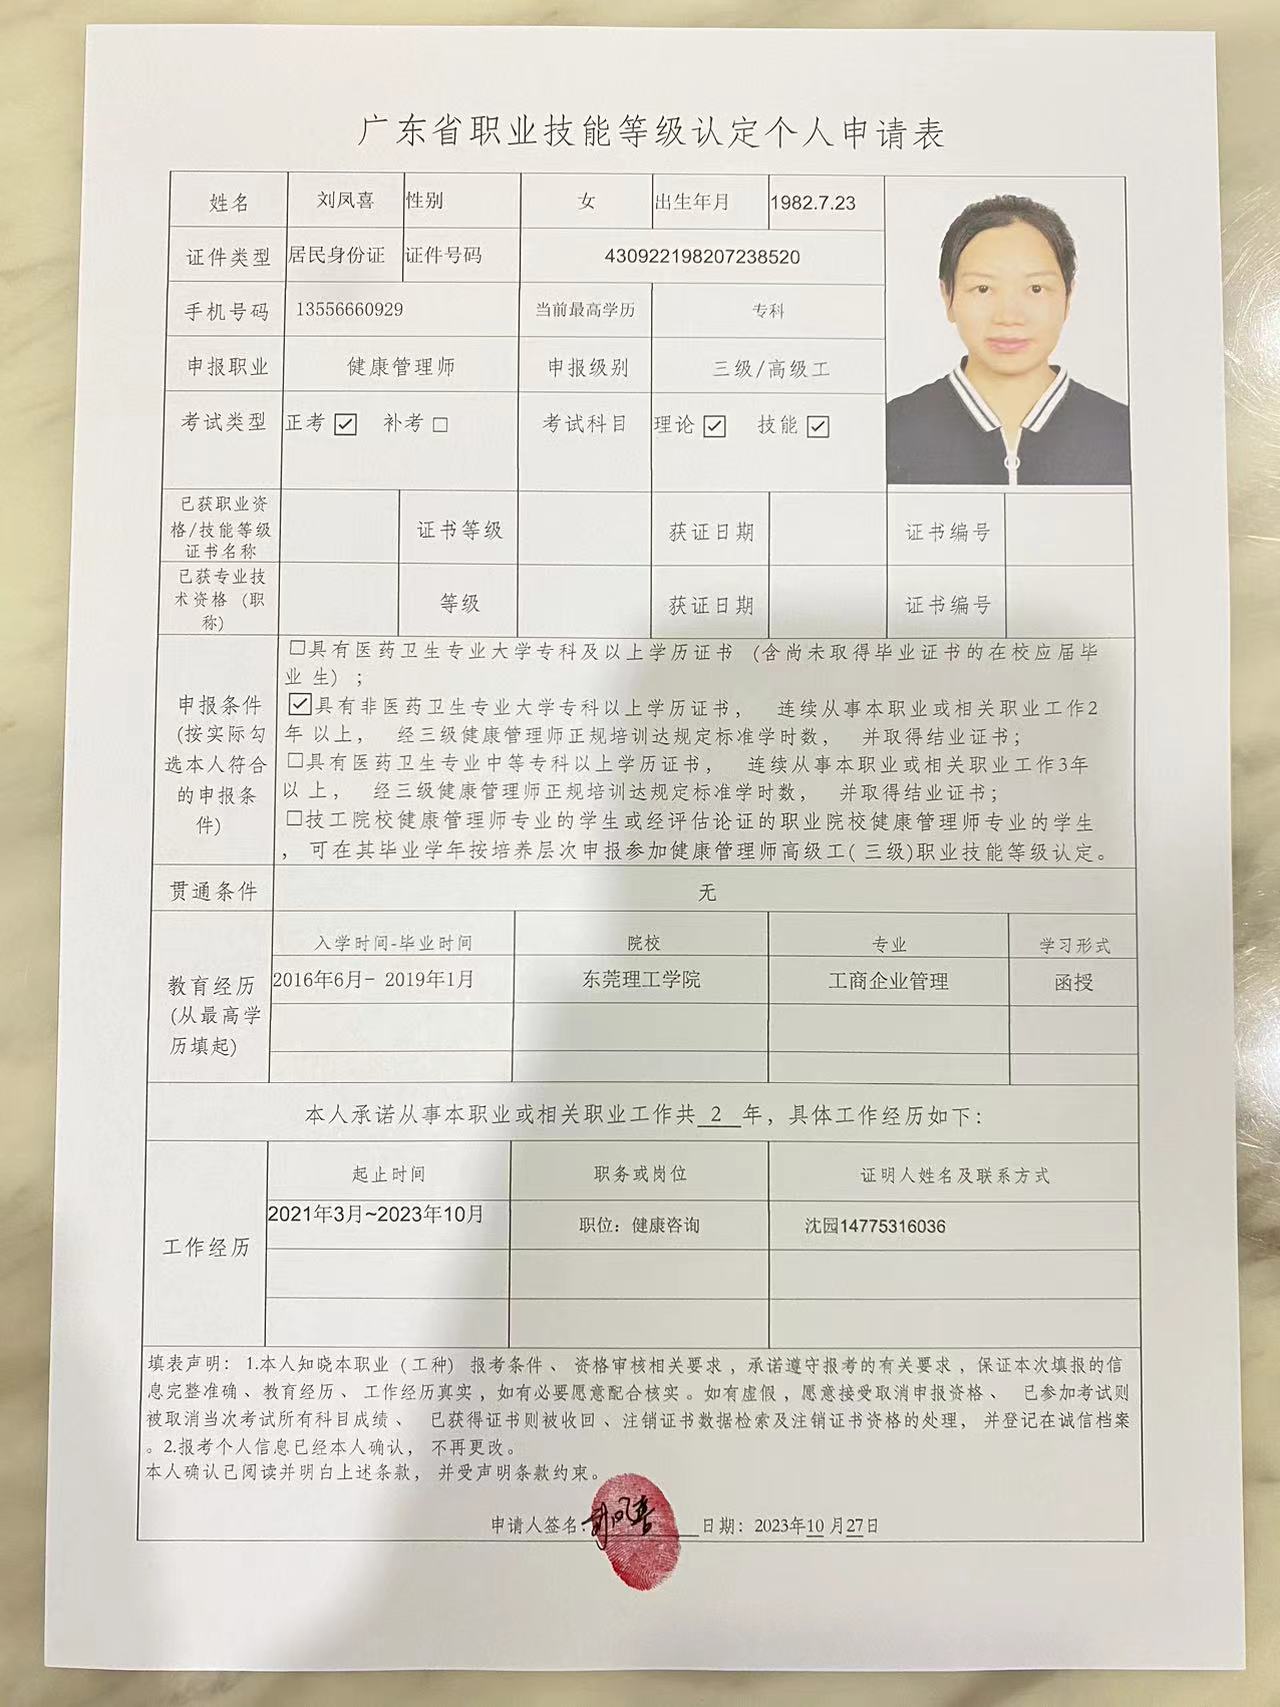 广东省职业技能等级认定个人申请表
姓名 刘凤喜 性别 女 出生年月 1982.7.23
证件类型 居民身份证 证件号码 430922198207238520
手机号码 13556660929 当前最高学历 专科
申报职业 健康管理师 申报级别 三级/高级工
考试类型 正考☑ 补考□ 考试科目 理论☑ 技能☑
已获职业资
格/技能等级
证书名称
证书等级 获证日期 证书编号
已获专业技
术资格 (职
称)
等级 获证日期 证书编号
申报条件
(按实际勾
选本人符合
的申报条
件)
□具有医药卫生专业大学专科及以上学历证书 (含尚未取得毕业证书的在校应届毕
业 生) ；
☑具有非医药卫生专业大学专科以上学历证书， 连续从事本职业或相关职业工作2
年 以上， 经三级健康管理师正规培训达规定标准学时数， 并取得结业证书；
□具有医药卫生专业中等专科以上学历证书， 连续从事本职业或相关职业工作3年
以 上， 经三级健康管理师正规培训达规定标准学时数， 并取得结业证书；
□技工院校健康管理师专业的学生或经评估论证的职业院校健康管理师专业的学生
，可在其毕业学年按培养层次申报参加健康管理师高级工(三级)职业技能等级认定。
贯通条件 无
教育经历
(从最高学
历填起)
入学时间-毕业时间 院校 专业 学习形式
2016年6月- 2019年1月 东莞理工学院 工商企业管理 函授
本人承诺从事本职业或相关职业工作共 2 年，具体工作经历如下：
工作经历
起止时间 职务或岗位 证明人姓名及联系方式
2021年3月~2023年10月 职位：健康咨询 沈园14775316036
填表声明： 1.本人知晓本职业（工种）报考条件、 资格审核相关要求，承诺遵守报考的有关要求，保证本次填报的信
息完整准确、教育经历、工作经历真实，如有必要愿意配合核实。如有虚假，愿意接受取消申报资格、 已参加考试则
被取消当次考试所有科目成绩、 已获得证书则被收回、注销证书数据检索及注销证书资格的处理， 并登记在诚信档案
。2.报考个人信息已经本人确认， 不再更改。
本人确认已阅读并明白上述条款， 并受声明条款约束。
申请人签名： 刘凤喜 日期： 2023年10 月27日